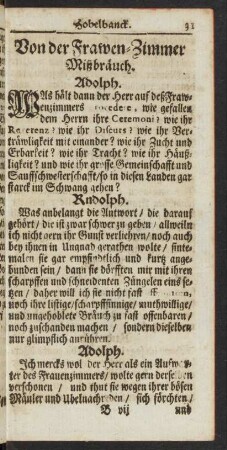 Hobelbanck. 31
Von der Frawen-Zimmer
Mißbräuch.
Adolph.
WAs hält dann der Herr auf deß Fraw-
enzimmers wie gefallen
dem Herrn ihre Ceremoni? wie ihr
Reverenz? wie ihr Discurs? wie ihr Ver-
träwligkeit mit einander? wie ihr Zucht und
Erbarkeit? wie ihr Tracht? wie ihr Häuß-
ligkeit? und wie ihr grosse Gemeinschafft und
Sauffschwesterschafft/ so in diesen Landen gar
starck im Schwang gehen?
Rudolph.
Was anbelangt die Antwort/ die darauf
gehört/ die ist zwar schwer zu geben/ allweiln
ich nicht gern ihr Gunst verliehren/ noch auch
bey ihnen in Ungnad gerathen wolte/ sinte-
malen sie gar empfindlich und kurtz ange-
bunden sein/ dann sie dörfften mir mit ihren
scharpffen und schneidenten Züngelen eins se-
tzen/ daher will ich sie nicht fast
noch ihre listige/ scharpffsinnige/ muthwillige/
und ungehoblete Bräuch zu fast offenbaren/
noch zuschanden machen/ sondern dieselben
nur glimpflich anrühren.
Adolph.
Ich mercks wol der Herr als ein Aufwar-
ter des Frauenzimmers/ wolte gern derselben
verschonen/ und thut sie wegen ihrer bösen
Mäuler und Übelnachreden/ sich förchten/
B vij und